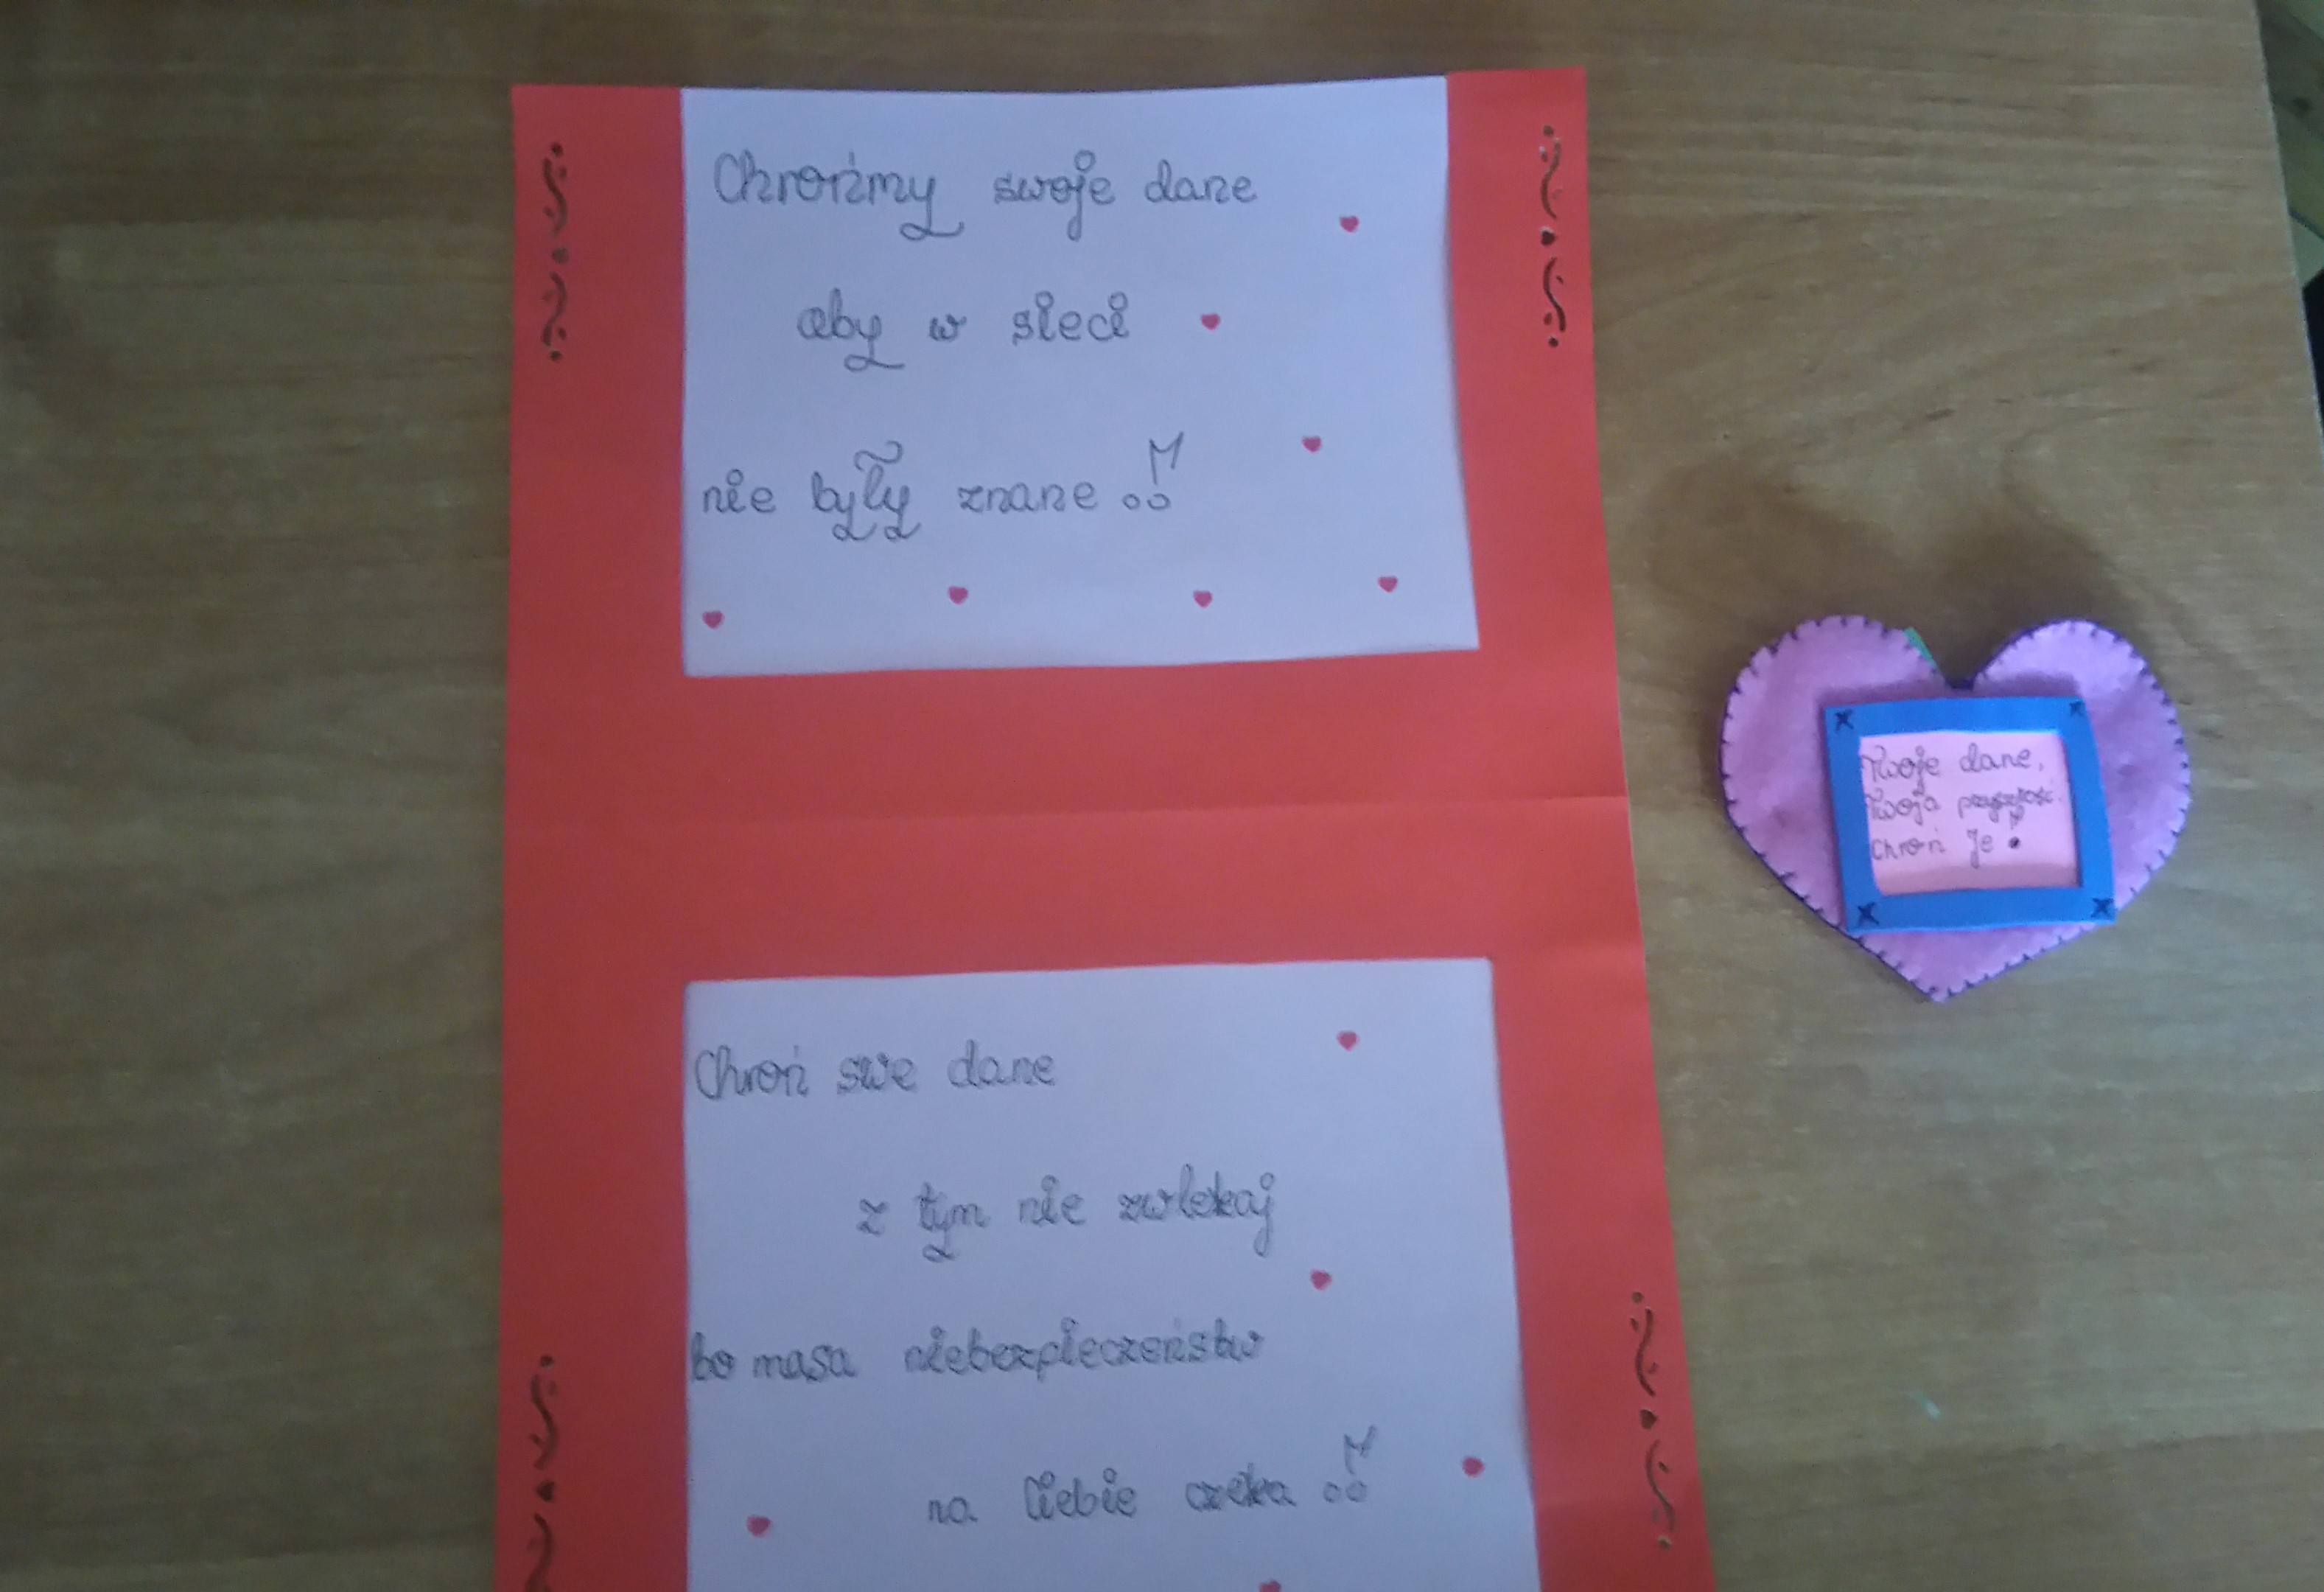 Chrońmy swoje dane
aby w sieci
nie były znane..!
Chroń swe dane
z tym nie zwlekaj
bo masa niebezpieczeństw
na Ciebie czeka..!
Twoje dane,
Twoja przyszłość.
Chroń je!